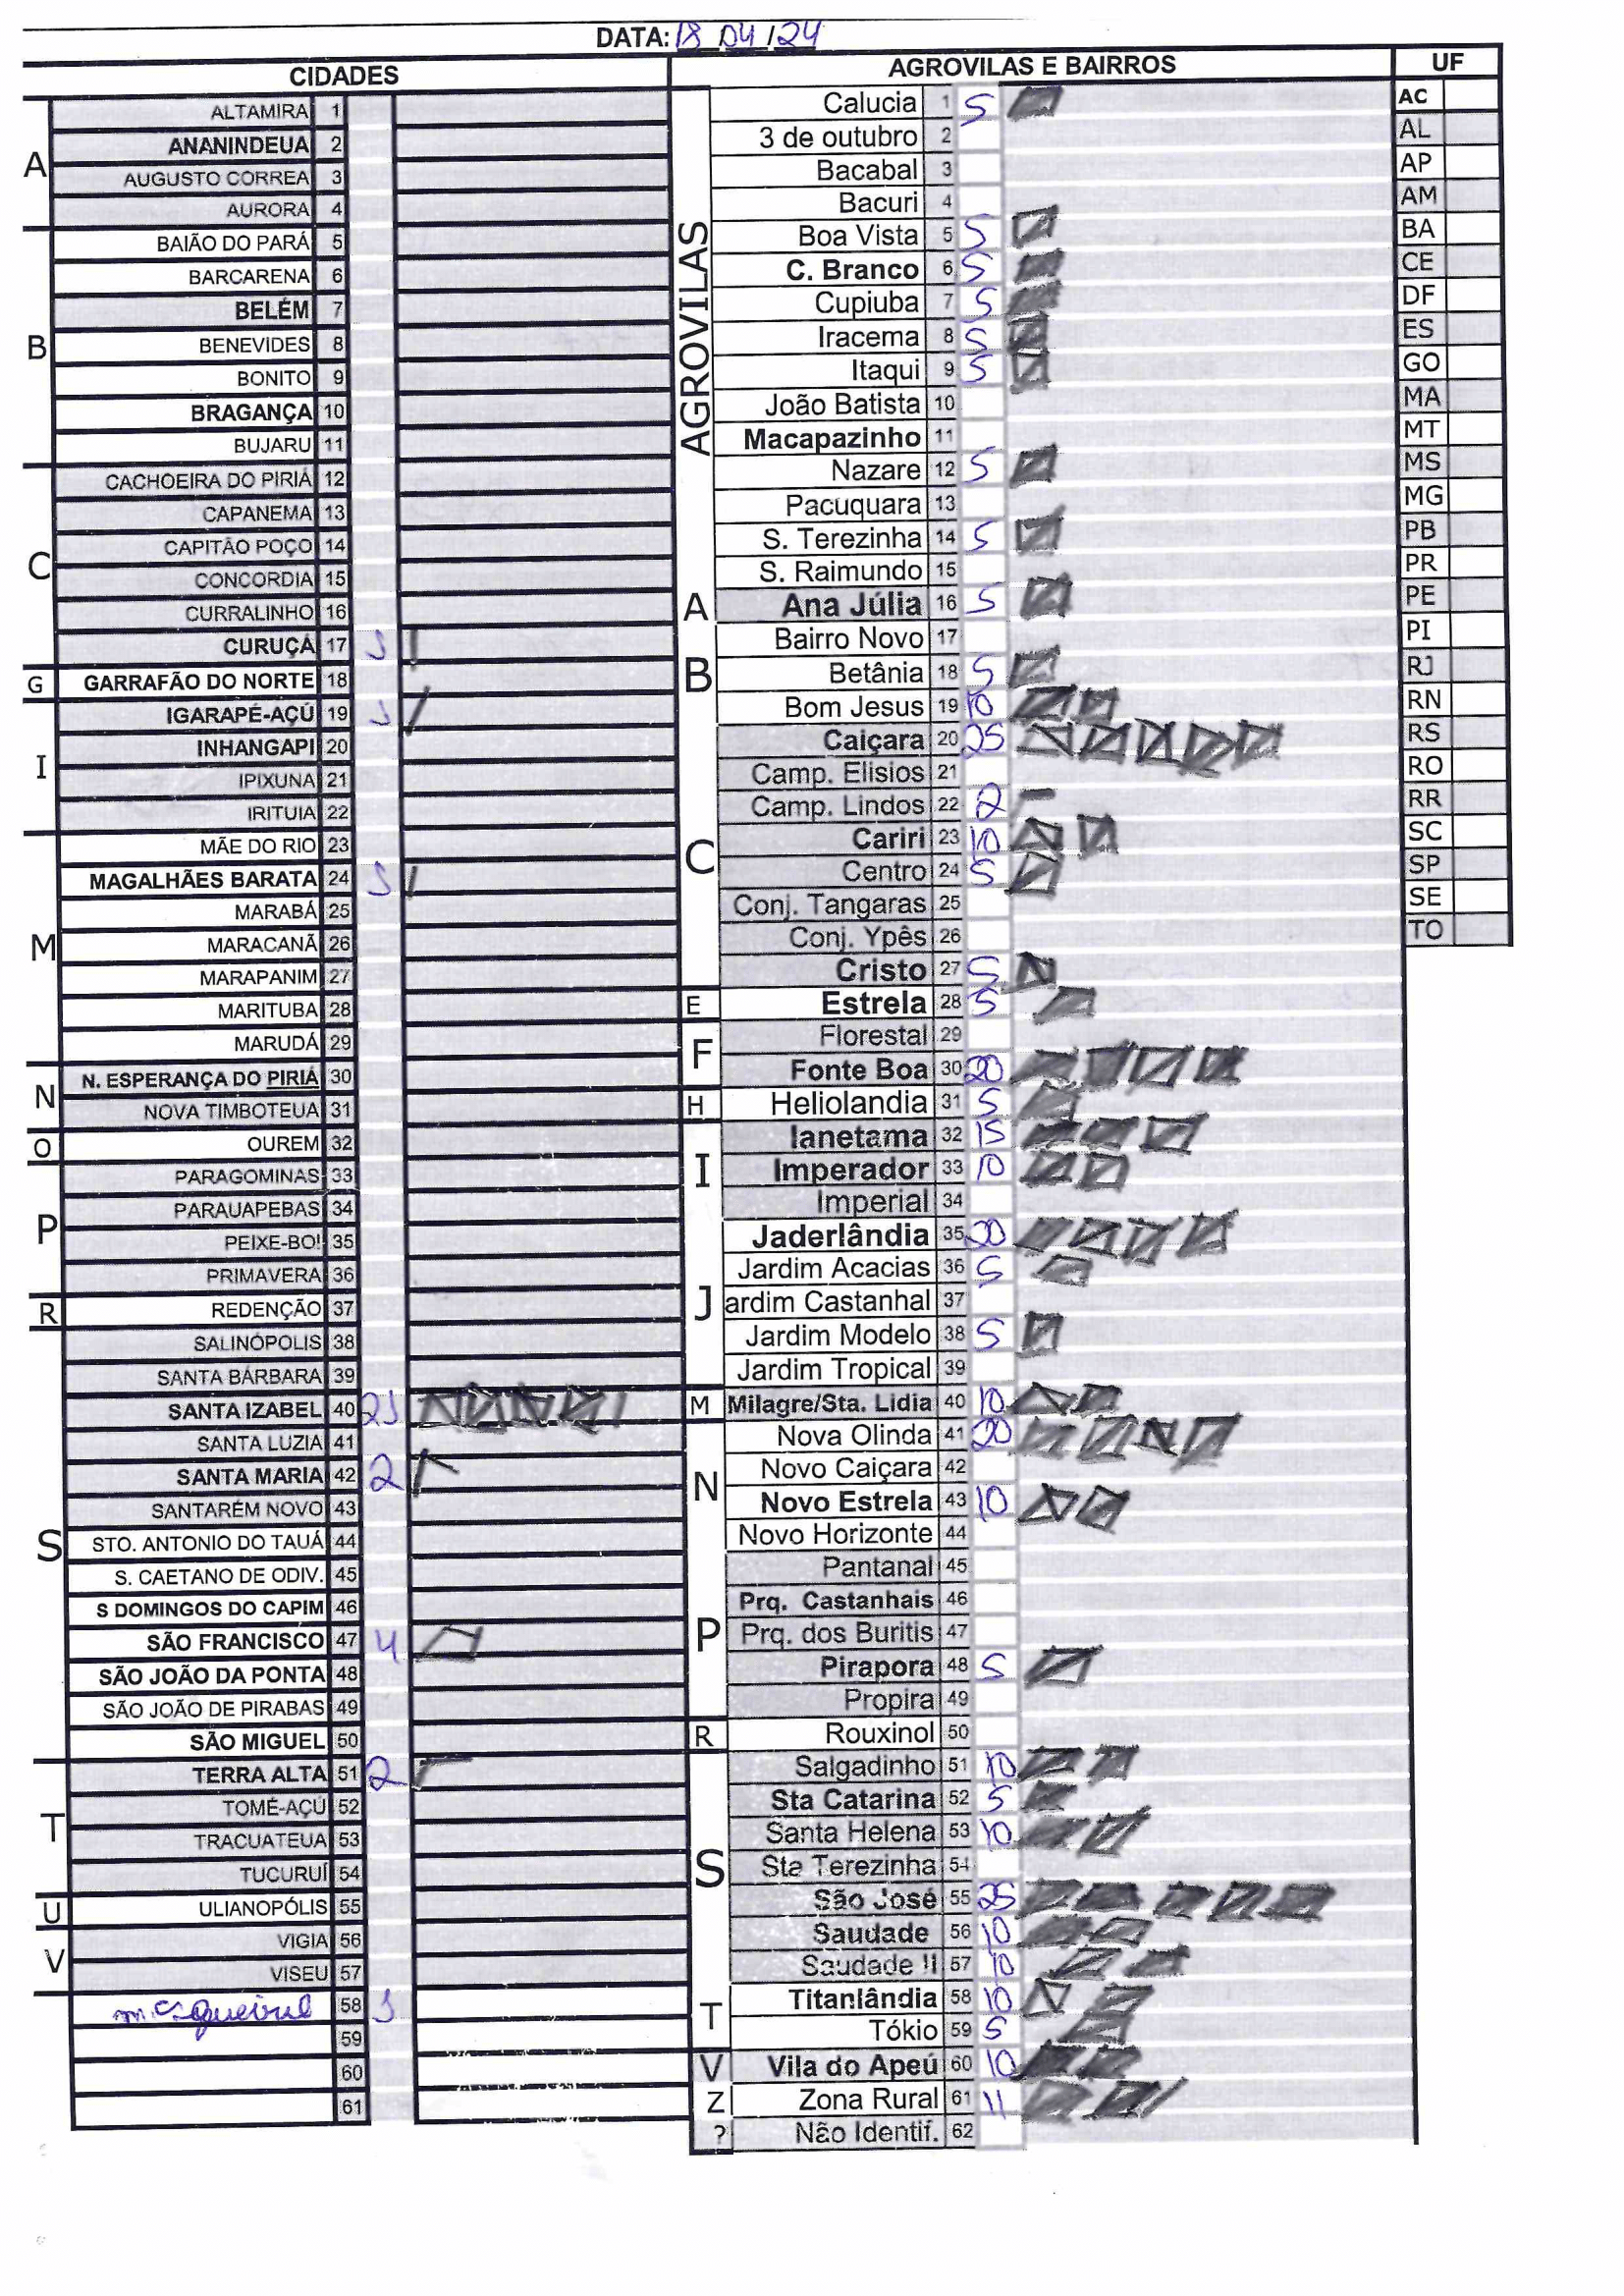 DATA: 18 04 / 24
CIDADES
A
ALTAMIRA 1
ANANINDEUA 2
AUGUSTO CORREA 3
AURORA 4
B
BAIÃO DO PARÁ 5
BARCARENA 6
BELÉM 7
BENEVIDES 8
BONITO 9
BRAGANÇA 10
BUJARU 11
C
CACHOEIRA DO PIRIÁ 12
CAPANEMA 13
CAPITÃO POÇO 14
CONCORDIA 15
CURRALINHO 16
CURUÇÁ 17 1
G
GARRAFÃO DO NORTE 18
I
IGARAPÉ-AÇÚ 19 1
INHANGAPI 20
IPIXUNA 21
IRITUIA 22
M
MÃE DO RIO 23
MAGALHÃES BARATA 24 1
MARABÁ 25
MARACANÃ 26
MARAPANIM 27
MARITUBA 28
MARUDÁ 29
N
N. ESPERANÇA DO PIRIÁ 30
NOVA TIMBOTEUA 31
O
OUREM 32
P
PARAGOMINAS 33
PARAUAPEBAS 34
PEIXE-BOI 35
PRIMAVERA 36
R
REDENÇÃO 37
S
SALINÓPOLIS 38
SANTA BÁRBARA 39
SANTA IZABEL 40 21
SANTA LUZIA 41
SANTA MARIA 42 2
SANTARÉM NOVO 43
STO. ANTONIO DO TAUÁ 44
S. CAETANO DE ODIV. 45
S DOMINGOS DO CAPIM 46
SÃO FRANCISCO 47 4
SÃO JOÃO DA PONTA 48
SÃO JOÃO DE PIRABAS 49
SÃO MIGUEL 50
T
TERRA ALTA 51 2
TOMÉ-AÇÚ 52
TRACUATEUA 53
TUCURUÍ 54
U
ULIANOPÓLIS 55
V
VIGIA 56
VISEU 57
58 1
59
60
61
AGROVILAS E BAIRROS
AGROVILAS
Calucia 1 5
3 de outubro 2
Bacabal 3
Bacuri 4
Boa Vista 5 5
C. Branco 6 5
Cupiuba 7 5
Iracema 8 5
Itaqui 9 5
João Batista 10
Macapazinho 11
Nazare 12 5
Pacuquara 13
S. Terezinha 14 5
S. Raimundo 15
A
Ana Júlia 16 5
B
Bairro Novo 17
Betânia 18 5
Bom Jesus 19 10
C
Caiçara 20 25
Camp. Elisios 21
Camp. Lindos 22 2
Cariri 23 10
Centro 24 5
Conj. Tangaras 25
Conj. Ypês 26
Cristo 27 5
E
Estrela 28 5
F
Florestal 29
Fonte Boa 30 20
H
Heliolandia 31 5
I
Ianetama 32 15
Imperador 33 10
Imperial 34
J
Jaderlândia 35 20
Jardim Acacias 36 5
ardim Castanhal 37
Jardim Modelo 38 5
Jardim Tropical 39
M
Milagre/Sta. Lidia 40 10
N
Nova Olinda 41 20
Novo Caiçara 42
Novo Estrela 43 10
Novo Horizonte 44
P
Pantanal 45
Prq. Castanhais 46
Prq. dos Buritis 47
Pirapora 48 5
Propira 49
R
Rouxinol 50
S
Salgadinho 51 10
Sta Catarina 52 5
Santa Helena 53 10
Sta Terezinha 54
São José 55 25
Saudade 56 10
Saudade II 57 10
T
Titanlândia 58 10
Tókio 59 5
V
Vila do Apeú 60 10
Z
Zona Rural 61 11
?
Não Identif. 62
UF
AC
AL
AP
AM
BA
CE
DF
ES
GO
MA
MT
MS
MG
PB
PR
PE
PI
RJ
RN
RS
RO
RR
SC
SP
SE
TO